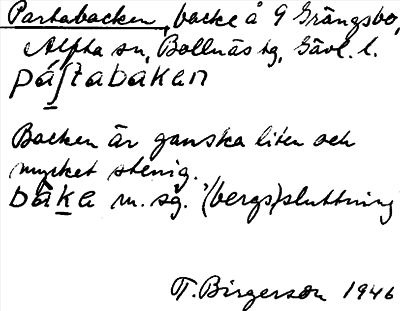 Partabacken, backe å 9 Grängsbo,
Alfta sn, Bollnäs tg, Gävl. l.
páʃtabakən
Backen är ganska liten och
mycket stenig.
bàkə m. sg. '(bergs)sluttning'
T. Birgerson 1946